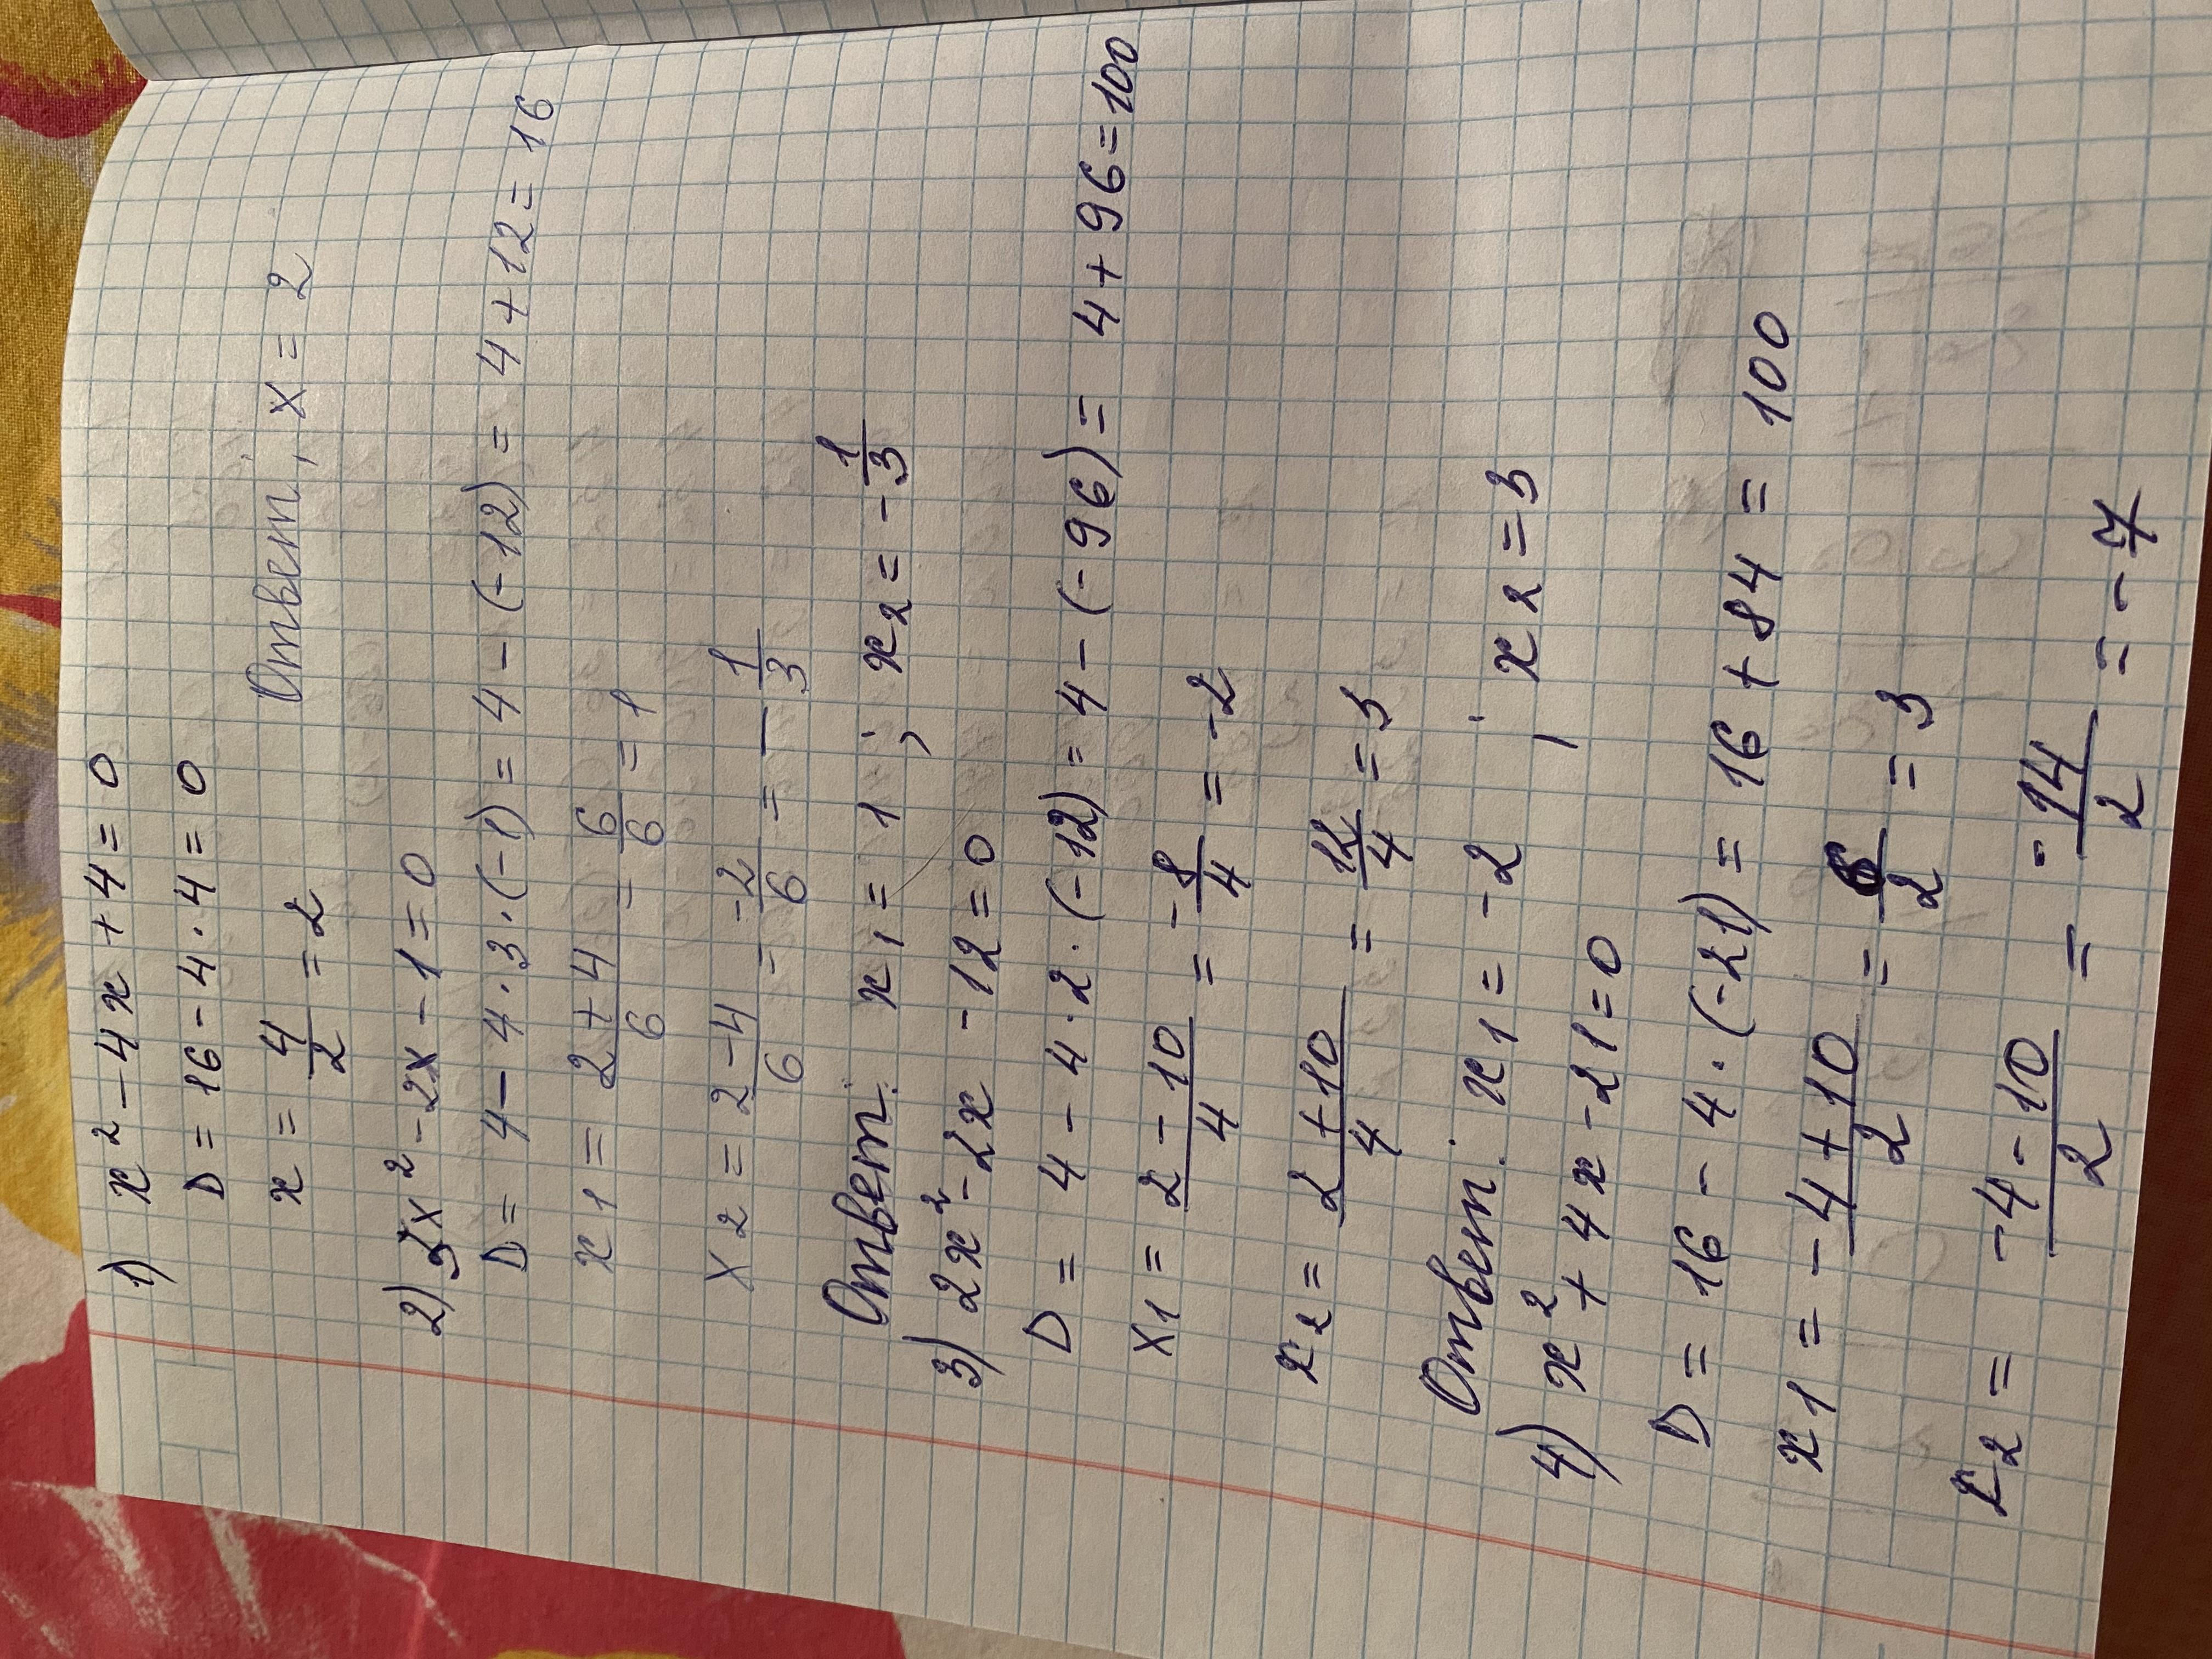 1) x² - 4x + 4 = 0
D = 16 - 4 · 4 = 0
x = 4/2 = 2
Ответ: x = 2
2) 3x² - 2x - 1 = 0
D = 4 - 4 · 3 · (-1) = 4 - (-12) = 4 + 12 = 16
x₁ = (2 + 4)/6 = 6/6 = 1
x₂ = (2 - 4)/6 = -2/6 = - 1/3
Ответ: x₁ = 1 ; x₂ = - 1/3
3) 2x² - 2x - 12 = 0
D = 4 - 4 · 2 · (-12) = 4 - (-96) = 4 + 96 = 100
x₁ = (2 - 10)/4 = - 8/4 = -2
x₂ = (2 + 10)/4 = 12/4 = 3
Ответ: x₁ = -2 ; x₂ = 3
4) x² + 4x - 21 = 0
D = 16 - 4 · (-21) = 16 + 84 = 100
x₁ = (-4 + 10)/2 = 6/2 = 3
x₂ = (-4 - 10)/2 = - 14/2 = - 7